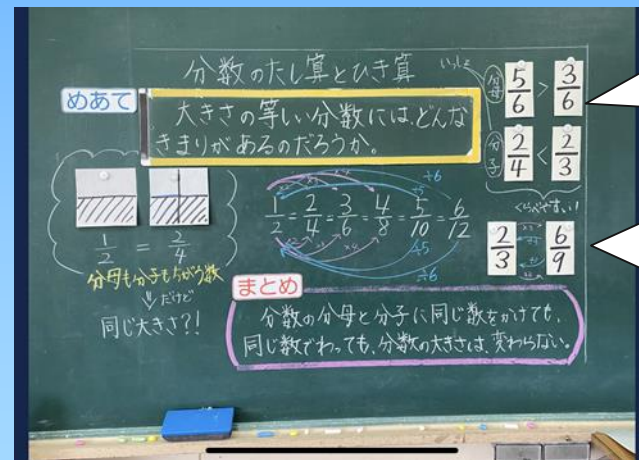 分数のたし算とひき算
めあて
大きさの等しい分数には、どんな
きまりがあるのだろうか。
いっしょ
分母 5/6 > 3/6
分子 2/4 < 2/3
くらべやすい!
2/3 6/9
1/2 = 2/4
分母も分子もちがう数
だけど
同じ大きさ?!
1/2 = 2/4 = 3/6 = 4/8 = 5/10 = 6/12
÷6
÷5
÷5
÷6
まとめ
分数の分母と分子に同じ数をかけても、
同じ数でわっても、分数の大きさは変わらない。